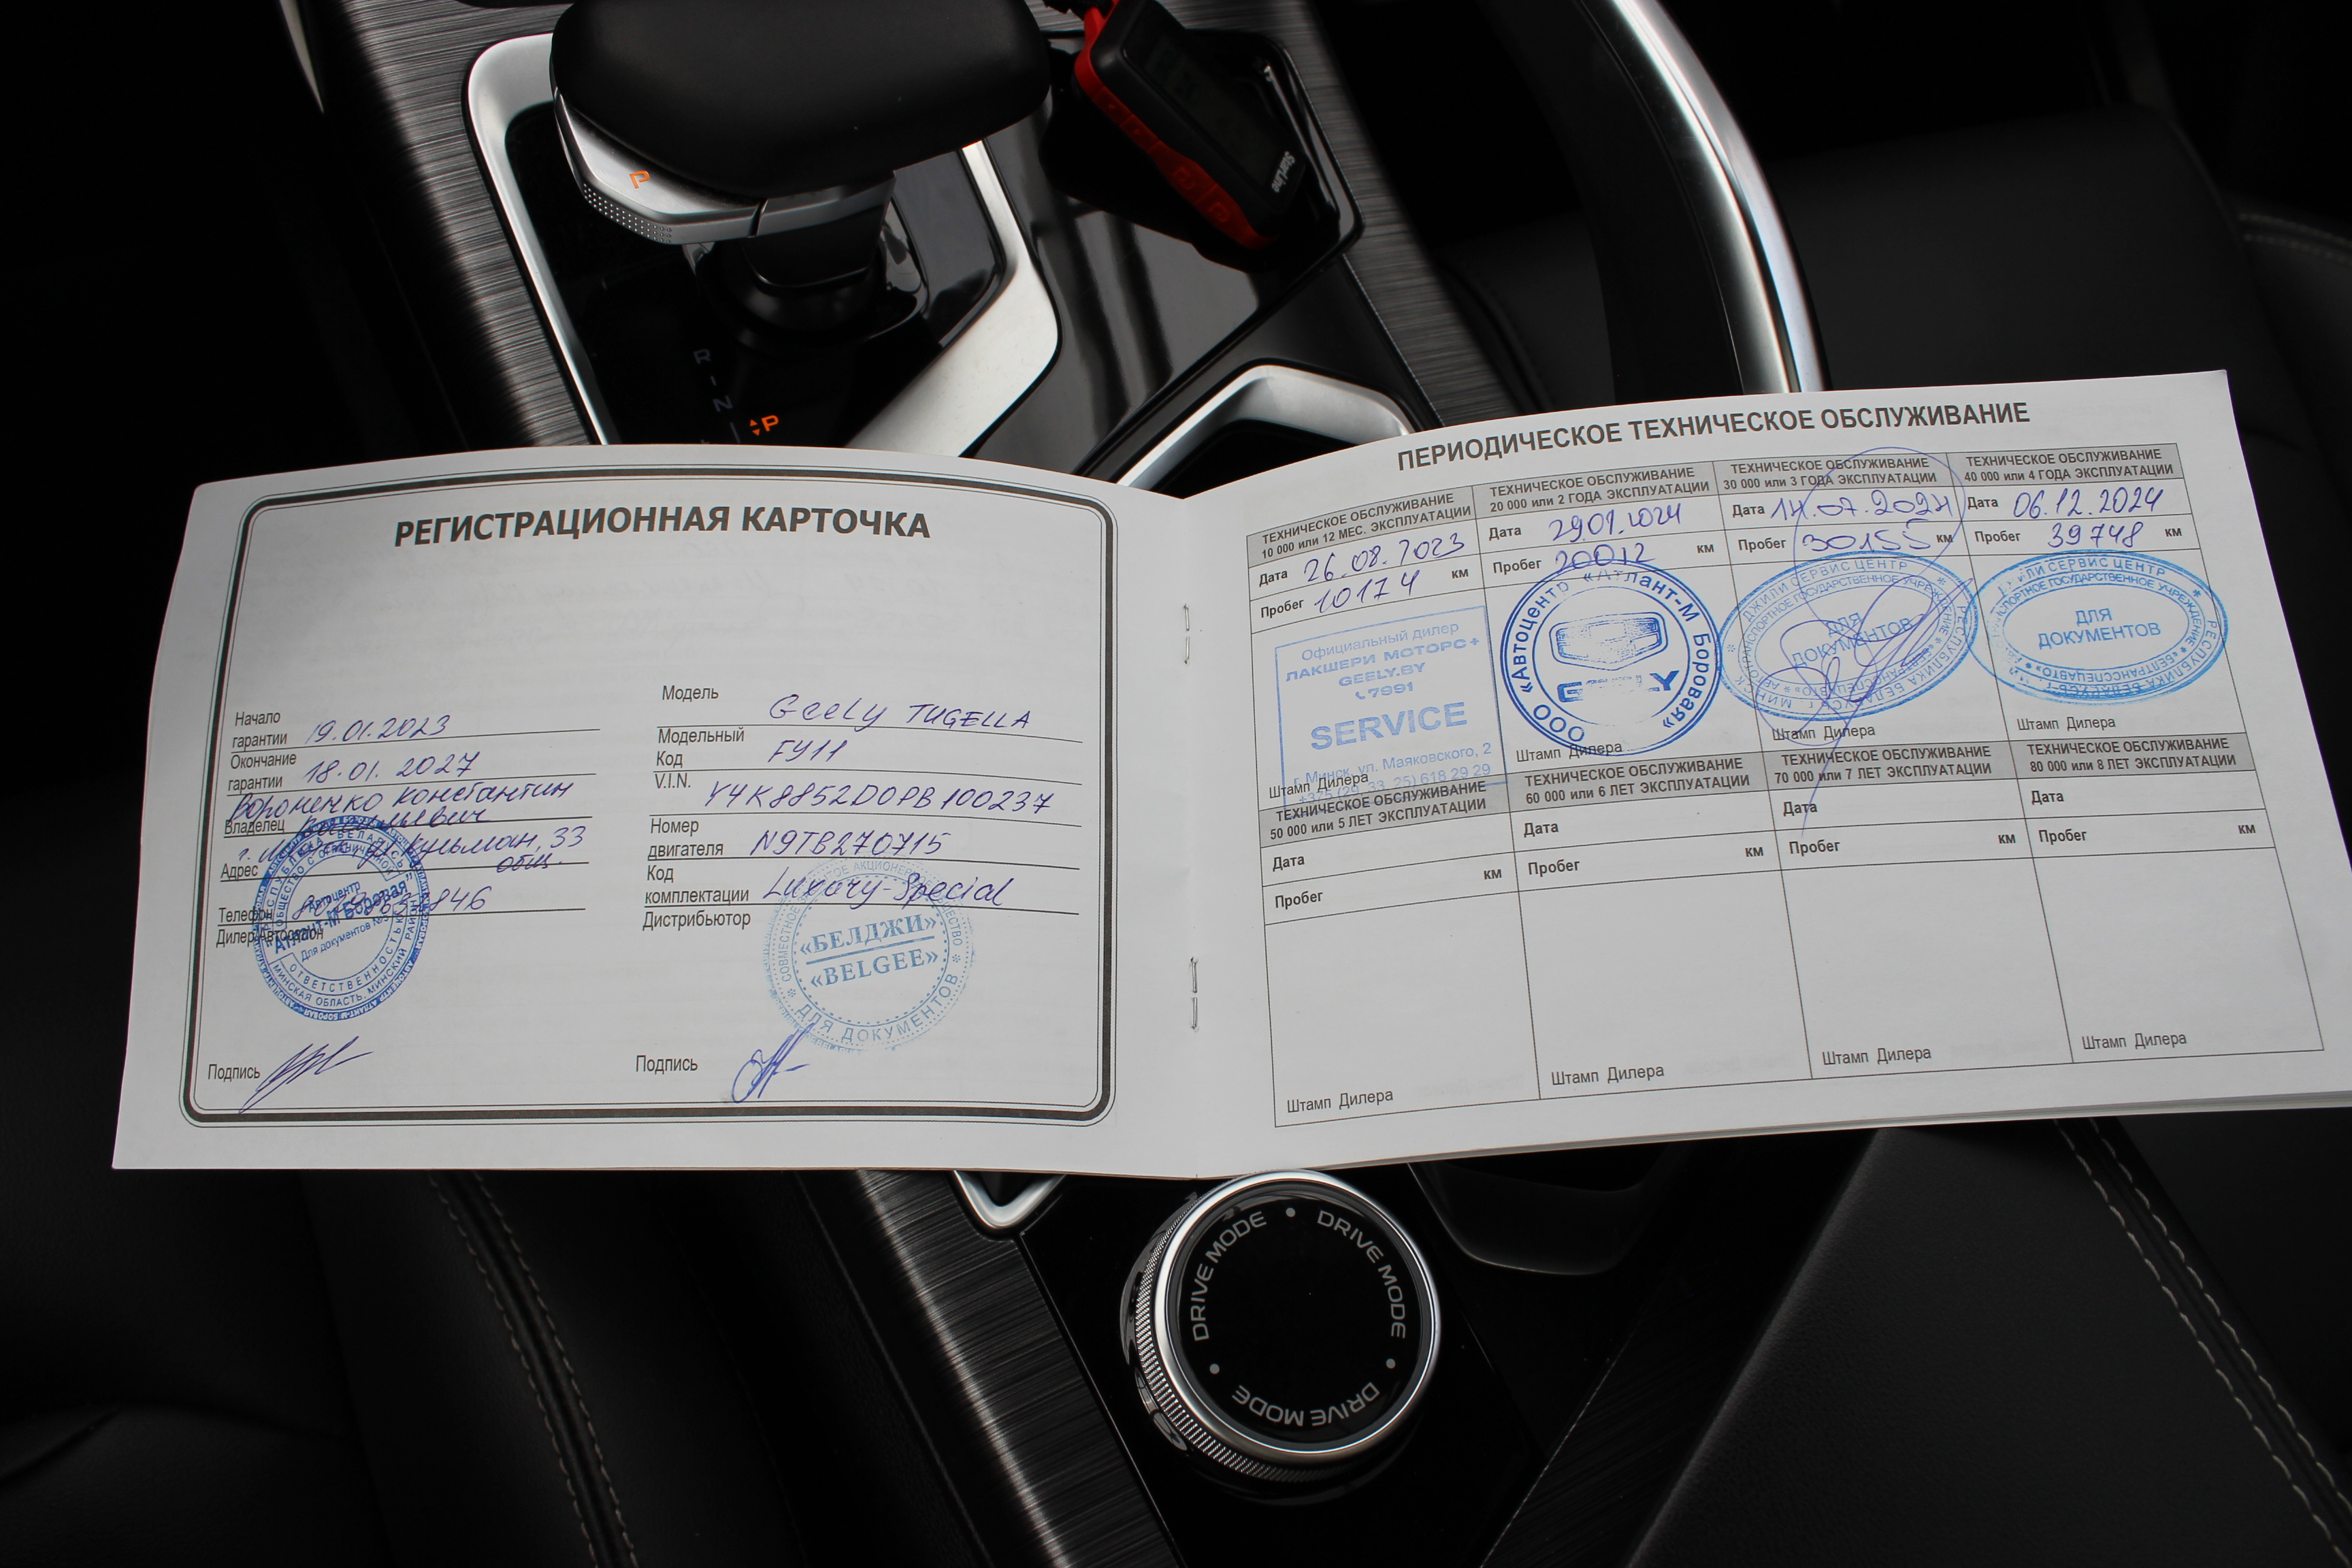 P
StarLine
R
N
P
РЕГИСТРАЦИОННАЯ КАРТОЧКА
Начало
гарантии 19.01.2023
Окончание
гарантии 18.01.2027
Вороненко Константин
Владелец
г. Кульман, 33
Адрес
общ.
Телефон
Дилер
РЕСПУБЛИКА БЕЛАРУСЬ
Автоцентр
"Атлант-М Боровая"
Для документов
ОТВЕТСТВЕННОСТЬЮ
МИНСКАЯ ОБЛАСТЬ, МИНСКИЙ РАЙОН
Подпись
Модель Geely TUGELLA
Модельный
Код FY11
V.I.N. Y4K8852D0PB100237
Номер
двигателя N9TB270715
Код
комплектации Luxury-Special
Дистрибьютор
СОВМЕСТНОЕ ЗАКРЫТОЕ АКЦИОНЕРНОЕ ОБЩЕСТВО
«БЕЛДЖИ»
«BELGEE»
ДЛЯ ДОКУМЕНТОВ
Подпись
ПЕРИОДИЧЕСКОЕ ТЕХНИЧЕСКОЕ ОБСЛУЖИВАНИЕ
ТЕХНИЧЕСКОЕ ОБСЛУЖИВАНИЕ
10 000 или 12 МЕС. ЭКСПЛУАТАЦИИ
Дата 26.08.2023
Пробег 10174 км
Официальный дилер
ЛАКШЕРИ МОТОРС+
GEELY.BY
7991
SERVICE
г. Минск, ул. Маяковского, 2
+375 (29, 33, 25) 618 29 29
Штамп Дилера
ТЕХНИЧЕСКОЕ ОБСЛУЖИВАНИЕ
20 000 или 2 ГОДА ЭКСПЛУАТАЦИИ
Дата 29.01.2024
Пробег 20012 км
ООО «Автоцентр «Атлант-М Боровая»
GEELY
Штамп Дилера
ТЕХНИЧЕСКОЕ ОБСЛУЖИВАНИЕ
30 000 или 3 ГОДА ЭКСПЛУАТАЦИИ
Дата 14.07.2024
Пробег 30155 км
ДЖИЛИ СЕРВИС ЦЕНТР
АВТОТРАНСПОРТНОЕ ГОСУДАРСТВЕННОЕ УЧРЕЖДЕНИЕ
«БЕЛТРАНССПЕЦАВТО»
РЕСПУБЛИКА БЕЛАРУСЬ г. МИНСК
ДЛЯ
ДОКУМЕНТОВ
Штамп Дилера
ТЕХНИЧЕСКОЕ ОБСЛУЖИВАНИЕ
40 000 или 4 ГОДА ЭКСПЛУАТАЦИИ
Дата 06.12.2024
Пробег 39748 км
СЕРВИС ЦЕНТР
ГОСУДАРСТВЕННОЕ УЧРЕЖДЕНИЕ
«БЕЛТРАНССПЕЦАВТО»
РЕСПУБЛИКА БЕЛАРУСЬ
ДЛЯ
ДОКУМЕНТОВ
Штамп Дилера
ТЕХНИЧЕСКОЕ ОБСЛУЖИВАНИЕ
50 000 или 5 ЛЕТ ЭКСПЛУАТАЦИИ
Дата
Пробег км
Штамп Дилера
ТЕХНИЧЕСКОЕ ОБСЛУЖИВАНИЕ
60 000 или 6 ЛЕТ ЭКСПЛУАТАЦИИ
Дата
Пробег км
Штамп Дилера
ТЕХНИЧЕСКОЕ ОБСЛУЖИВАНИЕ
70 000 или 7 ЛЕТ ЭКСПЛУАТАЦИИ
Дата
Пробег км
Штамп Дилера
ТЕХНИЧЕСКОЕ ОБСЛУЖИВАНИЕ
80 000 или 8 ЛЕТ ЭКСПЛУАТАЦИИ
Дата
Пробег км
Штамп Дилера
DRIVE MODE • DRIVE MODE • DRIVE MODE •